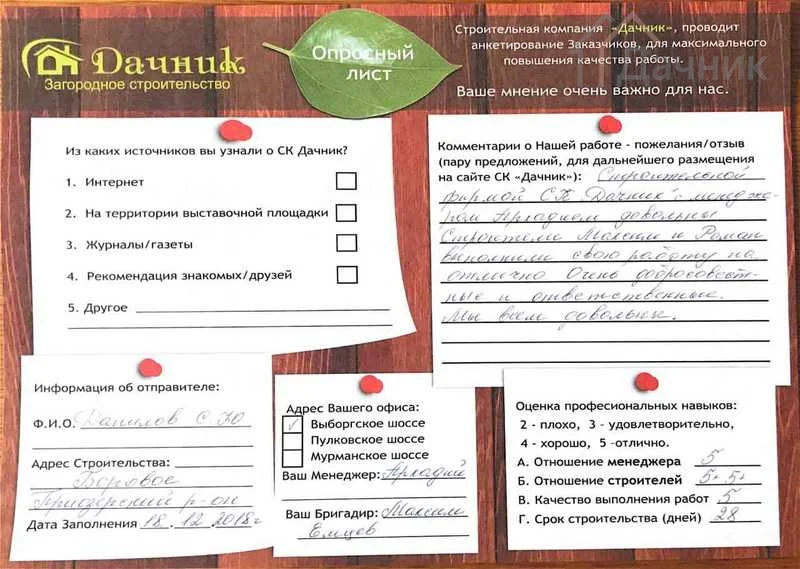 Дачник
Загородное строительство
Опросный
лист
Строительная компания «Дачник», проводит
анкетирование Заказчиков, для максимального
повышения качества работы.
Ваше мнение очень важно для нас.
Дачник
Из каких источников вы узнали о СК Дачник?
1. Интернет
2. На территории выставочной площадки
3. Журналы/газеты
4. Рекомендация знакомых/друзей
5. Другое
Комментарии о Нашей работе - пожелания/отзыв
(пару предложений, для дальнейшего размещения
на сайте СК «Дачник»): Строительной
фирмой СК "Дачник" с менедже-
ром Аркадием довольны
Строители Максим и Роман
выполнили свою работу на
отлично Очень добросовест-
ные и ответственные.
Мы всем довольны.
Информация об отправителе:
Ф.И.О. Данилов С.Ю
Адрес Строительства:
Боровое
Приозерский р-он
Дата Заполнения 18.12.2018г
Адрес Вашего офиса:
✓ Выборгское шоссе
Пулковское шоссе
Мурманское шоссе
Ваш Менеджер: Аркадий
Ваш Бригадир: Максим
Емцов
Оценка професиональных навыков:
2 - плохо, 3 - удовлетворительно,
4 - хорошо, 5 -отлично.
А. Отношение менеджера 5
Б. Отношение строителей 5+ 5+
В. Качество выполнения работ 5
Г. Срок строительства (дней) 28